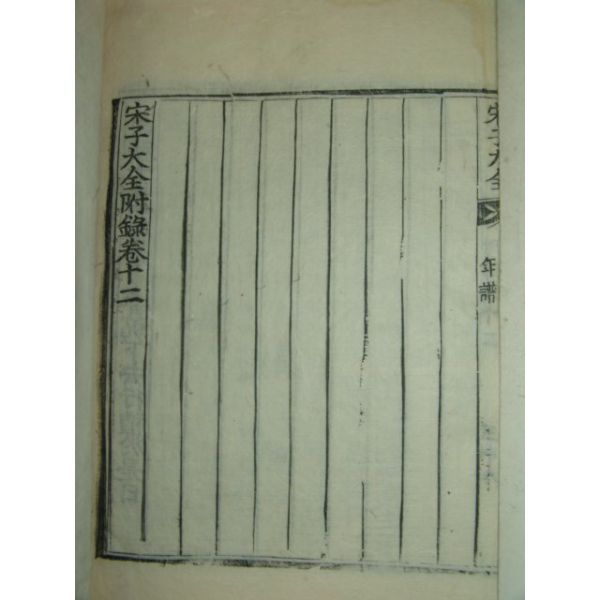 宋子大全
年譜十二
宋子大全附錄卷十二